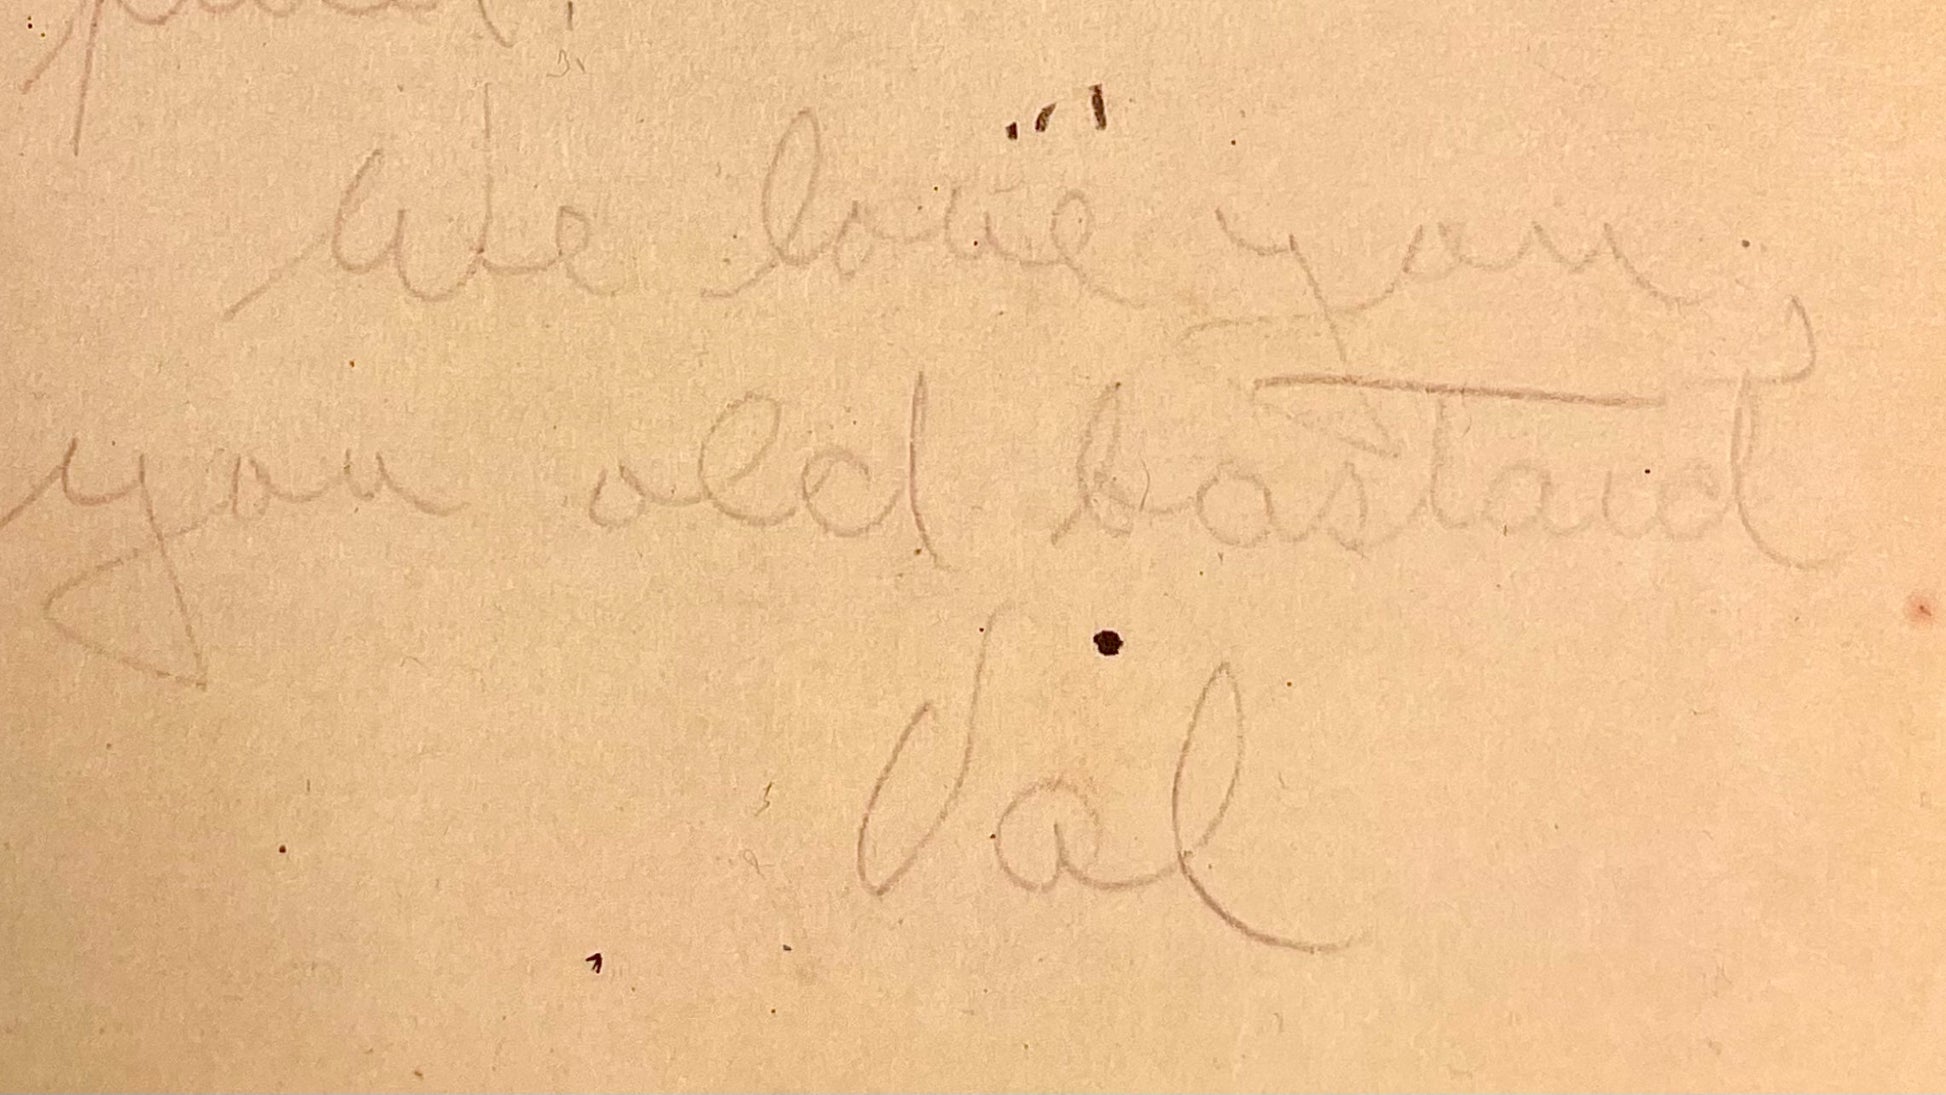 We love you,
you old bastard
Val